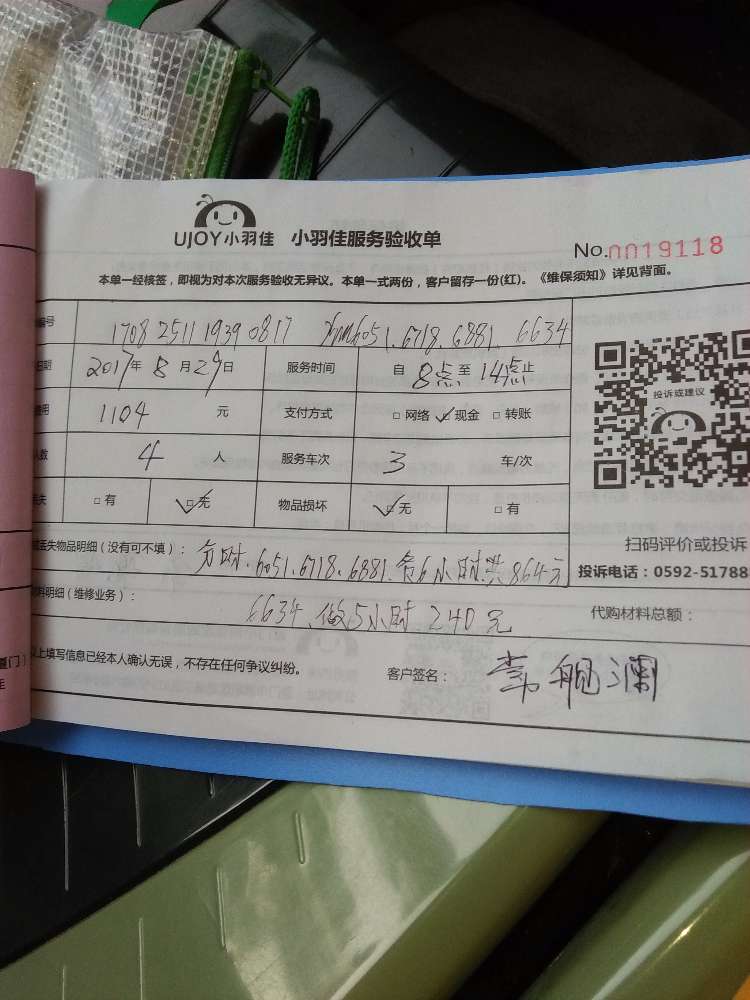 UJOY小羽佳 小羽佳服务验收单
No.0019118
本单一经核签，即视为对本次服务验收无异议。本单一式两份，客户留存一份(红)。《维保须知》详见背面。
编号 1708 2511 1939 0817 Xm6051.6718.6881. 6634
日期 2017年8月29日 服务时间 自8点至14点止
费用 1104 元 支付方式 □网络 ☑现金 □转账
人数 4 人 服务车次 3 车/次
丢失 □有 ☑无 物品损坏 ☑无 □有
投诉或建议
丢失物品明细（没有可不填）： 6051.6718.6881.各6小时.共864元
扫码评价或投诉
投诉电话：0592-51788
材料明细（维修业务）： 6634、做5小时 240元 代购材料总额：
以上填写信息已经本人确认无误，不存在任何争议纠纷。 客户签名：
厦门）